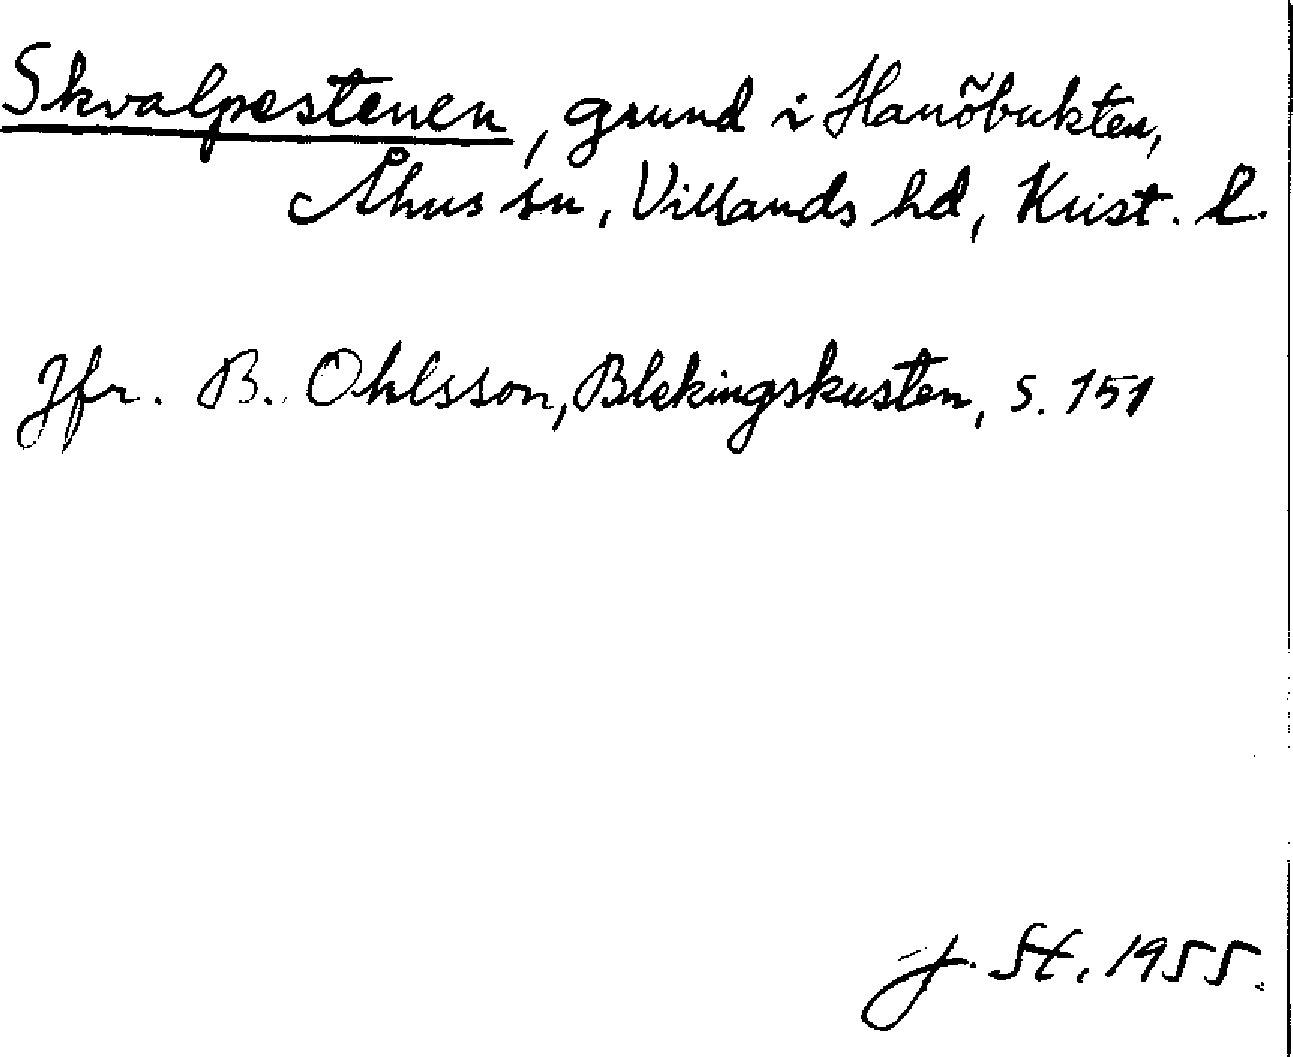 Skvalpestenen, grund i Hanöbukten,
Åhus sn, Villands hd, Krist. l.
Jfr. B. Ohlsson, Blekingskusten, s. 151
J. St. 1955.